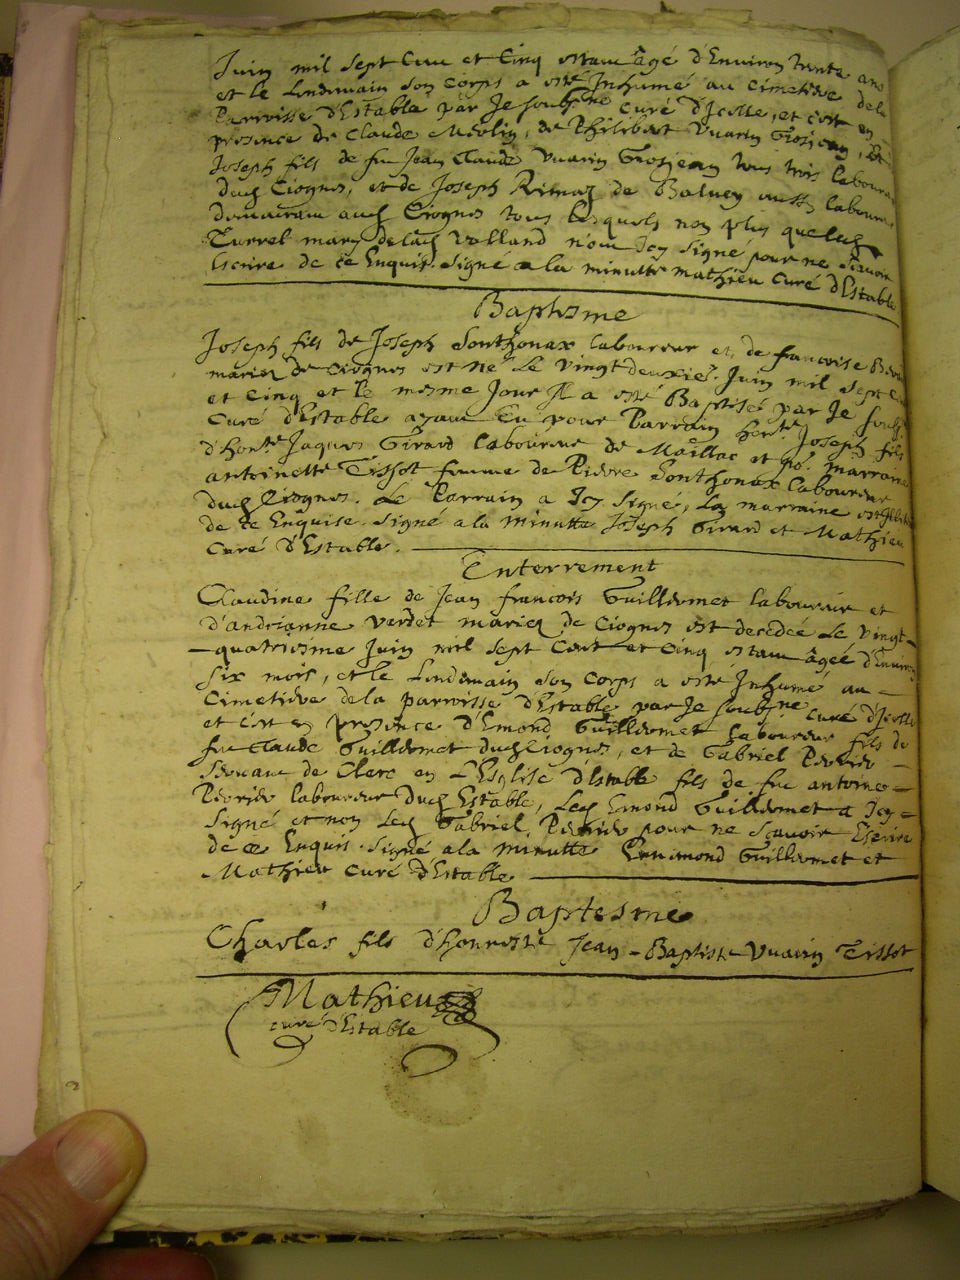 Juin mil sept Cent et Cinq estant âgé d'Environ trente ans
et le Lendemain son Corps a esté Inhumé au Cimetiere dela
Parroisse d'Estable par Je soubsne curé d'Icelle, et c'est en
presence de Claude Merlin, de Philibert Vuarin Grosjean, de
Joseph fils de fu Jean Claude Vuarin Grosjean tous trois laboureurs
dud Ciognes, et de Joseph de aussy laboureur
demeurant aud Ciognes tous lesquels non plus que led
Turrel mary delad Volland n'ont Icy signé pour ne scavoir
Escrire de ce Enquis. Signé a la minutte Mathieu curé d'Estable
Baptesme
Joseph fils de Joseph Sonthonax laboureur et de francoise
mariez de Ciognes est né Le vingtdeuxie. Juin mil sept Cent
et Cinq et le mesme Jour Il a esté Baptisé par Je soub.
Curé d'Estable ayant Eu pour Parrain honte. Joseph fils
d'honte Jaques Girard laboureur de Maillac et po. marraine
antoinette Tissot femme de Pierre Sonthonax laboureur
dud Ciognes. Le Parrain a Icy signé, La marraine
de ce Enquise. Signé a la minutte Joseph Girard et Mathieu
curé d'Estable.
Enterrement
Claudine fille de Jean francois Guillermet laboureur et
d'andrianne Verdet mariez de Ciognes est decedée Le vingt-
-quatriesme Juin mil sept Cent et Cinq estant âgée d'Environ
six mois, et le Lendemain son Corps a esté Inhumé au -
Cimetiere dela parroisse d'Estable par Je soubsne curé d'Icelle
et c'est en presence d'Emond Guillermet laboureur fils de
fu Claude Guillermet dud Ciognes, et de Gabriel -
servant de Clerc en L'Esglise d'Estable fils de fu antoine -
laboureur dud Estable, Led Emond Guillermet a Icy -
signé et non Led Gabriel pour ne scavoir Escrire
de ce Enquis. Signé a la minutte Emmond Guillermet et
Mathieu curé d'Estable
Baptesme
Charles fils d'honneste Jean-Baptiste Vuarin Tissot
Mathieu
curé d'Estable